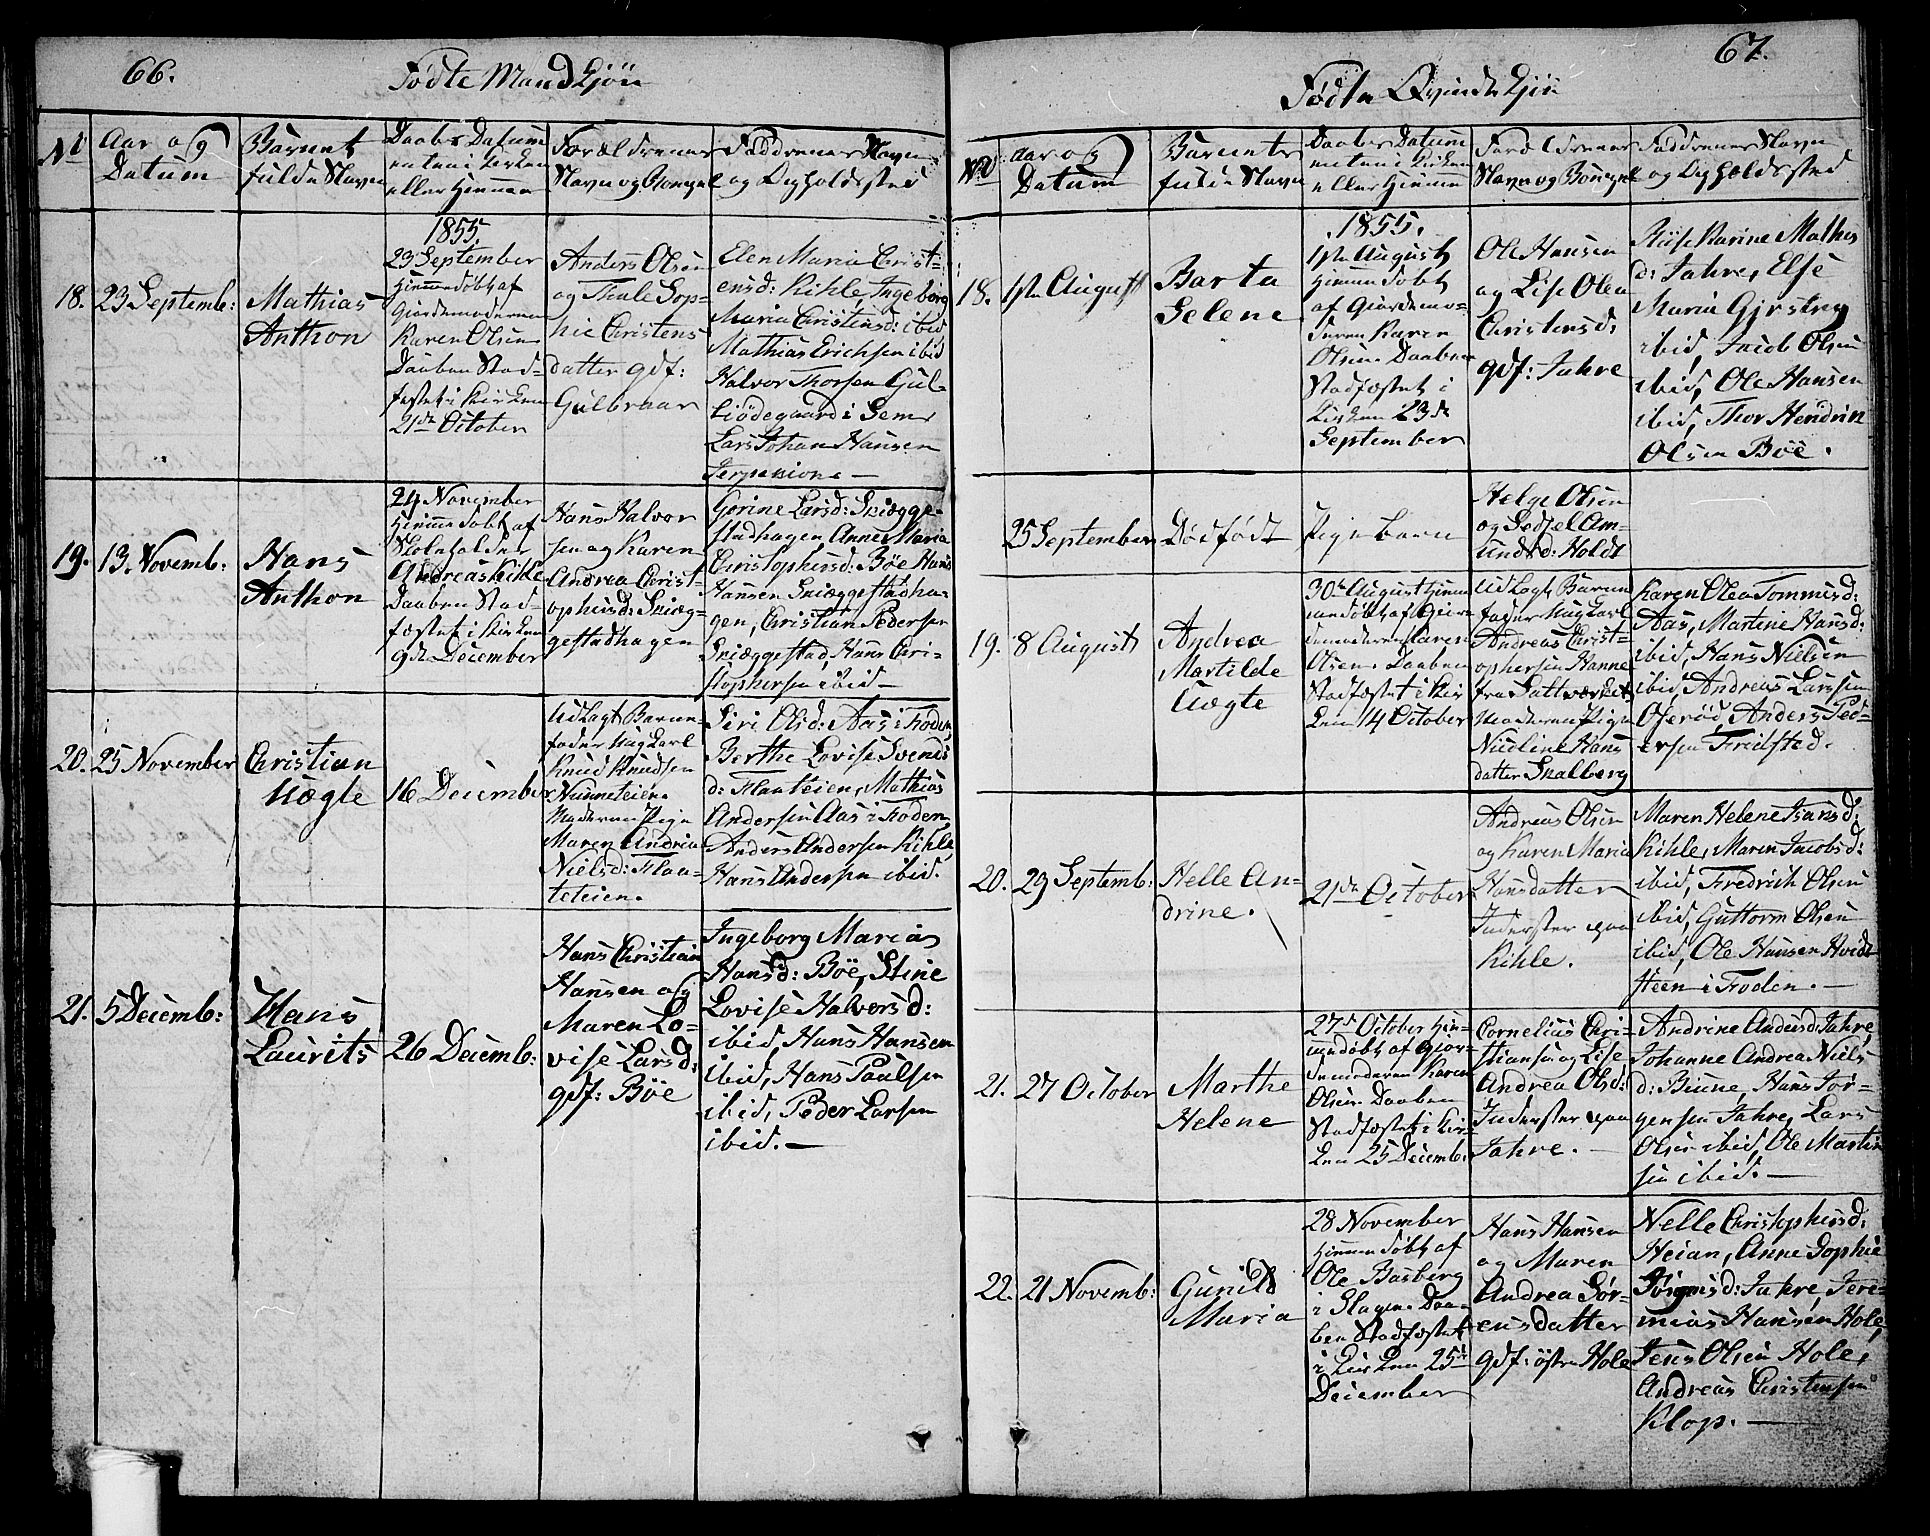 66.
Fødte Mandkjøn
No
Aar og
Datum
Barnets
fulde Navn
Daabs Datum
enten i Kirken
eller Hjemme
Forældrenes
Navn og Bopæl
Faddrenes Navn
og Opholdssted
18.
23 Septemb:
Mathias
Anthon
1855
23 September
Hjemmedøbt af
Gjordemoderen
Karen Olsen
Daaben Stad=
fæstet i Kirken
21de October
Anders Olsen
og Thale Sop=
hie Christens
datter gdf:
Gulbraar
Elen Maria Christ=
ensd: Kihle, Ingeborg
Maria Christensd: ibid
Mathias Erichsen ibid
Halvor Thorsen Gul=
liødegaard i Sem
Lars Johan Hansen
19.
13. Novemb:
Hans
Anthon
24 November
Hjemmedøbt af
Skoleholder
Andreas Kihle
Daaben Stad=
fæstet i Kirken
9de December
Hans Halvor
sen og Karen
Andrea Christ=
ophersd: Sniæg=
gestadhagen
Gorine Larsd: Sniægge=
stadhagen Anne Maria
Christophersd: Bøe Hans
Hansen Sniæggestadha=
gen, Christian Pedersen
Sniæggestad, Hans Chri=
stophersen ibid —
20.
25 November
Christian
Uægte
16 December
Udlagt Barne=
fader Ung Karl
Knud Knudsen
Nunneteien
Moderen Pige
Maren Andrea
Nielsd: Flaa=
teteien.
Siri Olsd: Aas i Foden
Berthe Lovise Svends
d: Flaateien, Mathias
Andersen Aas i Foden,
Anders Andersen Kihle,
Hans Andersen ibid.
21.
5 Decemb:
Hans
Laurits
26 Decemb:
Hans Christian
Hansen og
Maren Lo=
vise Larsd:
gdf: Bøe
Ingeborg Marias
Hansd: Bøe, Stine
Lovise Halvorsd:
ibid, Hans Hansen
ibid, Hans Paulsen
ibid, Peder Larsen
ibid. —
67.
Fødte Qvindekjøn
No
Aar og
Datum
Barnets
fulde Navn
Daabs Datum
enten i Kirken
eller Hjemme
Forældrenes
Navn og Bopæl
Faddrenes Navn
og Opholdssted
18.
1ste August
Barta
Selene
1855.
1ste August
Hjemmedøbt
af Gjordemo=
deren Karen
Olsen Daaben
Stadfæstet i
Kirken 23de
September
Ole Hansen
og Lise Olea
Christensd:
gdf: Jahre
Riise Karine Mathis
d: Jahre, Else
Maria
ibid, Jacob Olsen
ibid, Ole Hansen
ibid, Thor Hendrik
Olsen Bøe.
25 September
Dødfødt
Pigebarn
Helge Olsen
og Sedsel Am=
undsd: Holdt
19.
8 August
Andrea
Martilde
Uægte
30te August Hjem
medøbt af Gjor=
demoderen Karen
Olsen. Daaben
Stadfæstet i Kir
ken 14 October
Udlagt Barne
fader Ung Karl
Andreas Christ=
ophersen Hanne
fra Saltværket
Moderen Pige
Nicoline Hans
datter Skalberg
Karen Olea Tommesd:
Aas, Martine Hansd:
ibid, Hans Nielsen
ibid, Andreas Larssen
Oserød, Anders Ped=
ersen Fredsted.
20.
29 Septemb:
Helle An=
drine.
21de October
Andreas Olsen
og Karen Maria
Hansdatter
Inderster paa
Kihle.
Maren Helene Isaksd:
Kihle, Maren Jacobsd:
ibid, Fredrich Olsen
ibid, Guttorm Olsen
ibid, Ole Hansen Hvidt
steen i Foden. —
21.
27 October
Marthe
Helene
27de October Hjem=
medøbt af Gjor=
demoderen Karen
Olsen Daaben
Stadfæstet i Kir=
ken 25 Decemb:
Cornelius Chri=
stiansen og Lise
Andrea Olsd:
Inderster paa
Jahre. —
Andrine Andersd: Jahre,
Johanne Andrea Niels
d: Biune, Hans Jør=
gensen Jahre, Lars
Olsen ibid, Ole Martin
sen ibid. —
22.
21 Novemb:
Gunild
Maria
28 November
Hjemmedøbt af
Ole Basberg
i Slagen. Daa=
ben Stadfæstet
i Kirken 25de
December
Hans Hansen
og Maren
Andrea Sør=
ensdatter
gdf: østre Hole
Nelle Christophersd:
Heian, Anne Sophie
Jørgensd: Jahre, Jere=
mias Hansen Hole,
Jens Olsen Hole,
Andreas Christensen
Klop. —